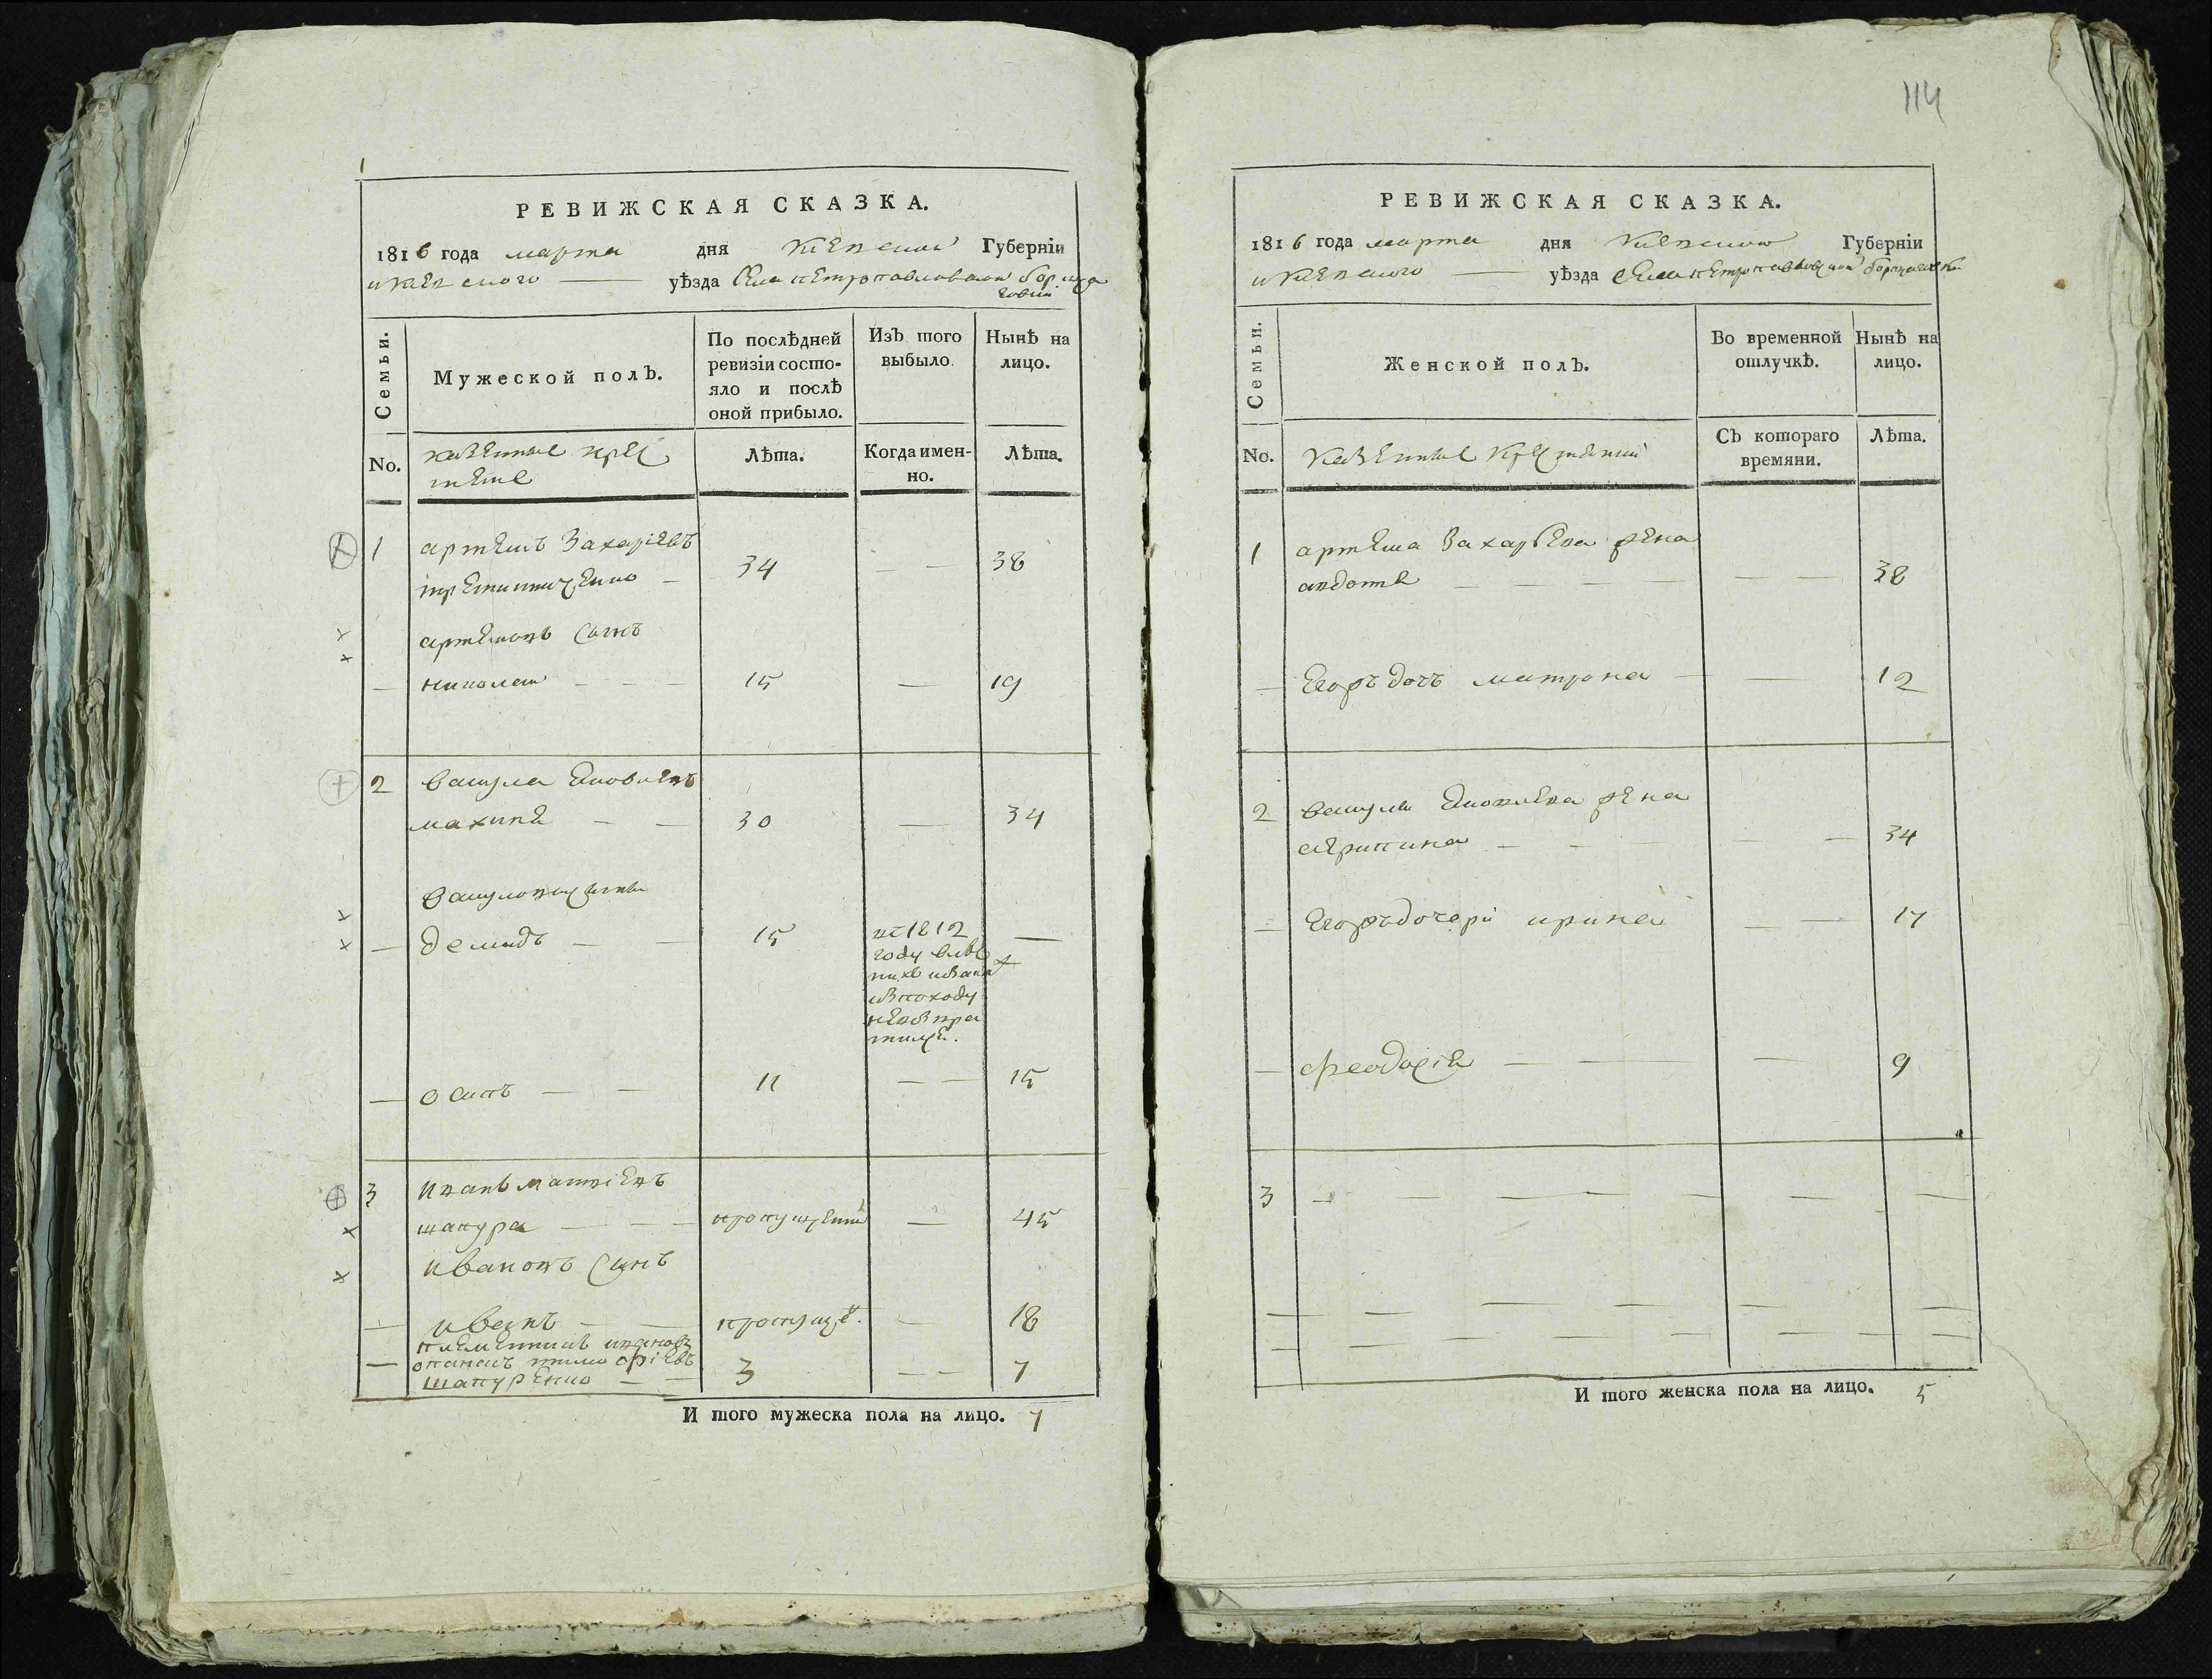 114
РЕВИЖСКАЯ СКАЗКА.
1816 года марта дня Киевской Губерніи
и Киевского уѣзда Села петропавловской борща
говки
Семьи.
Мужеской полЪ.
По послѣдней
ревизіи состо-
яло и послѣ
оной прибыло.
ИзЪ того
выбыло.
НынѢ на
лицо.
No.
казенные крес
тяне
Лѣта.
Когда имен-
но.
Лѣта.
1 артемъ Захаріевъ
34 — — 38
артемовъ Синъ
— николай — — — 15 — 19
2 вакула Яковлевъ
махиня — — 30 — 34
вакуловы сины
— демидъ — — 15 —
въ 1812
году
ихъ
изпоходу
невозвра
тился.
— осипъ — — 11 — — 15
3 иванъ матвіевъ
шапура — — — пропущений — 45
ивановъ Синъ
— иванъ — — пропуще. — 18
племенникъ ивановъ
— опанасъ тимофіевъ
шапуренко — — 3 — — 7
И того мужеска пола на лицо. 7
РЕВИЖСКАЯ СКАЗКА.
1816 года марта дня Киевской Губерніи
и Киевского уѣзда села петропавловской борщаговки
Семьи.
Женской полЪ.
Во временной
отлучкѢ.
НынѢ на
лицо.
No.
казенные крестянки
СЪ котораго
времяни.
Лѣта.
1 артема Захарѣева жена
авдотя — — — — — — 38
— Егоръ дочъ матрона — — 12
2 вакули Яковлева жена
агрипина — — — — — 34
— Егоръ дочери ирина — — 17
— феодосія — — — 9
3 — — — — — —
— — — — — —
— — — — — —
И того женска пола на лицо. 5